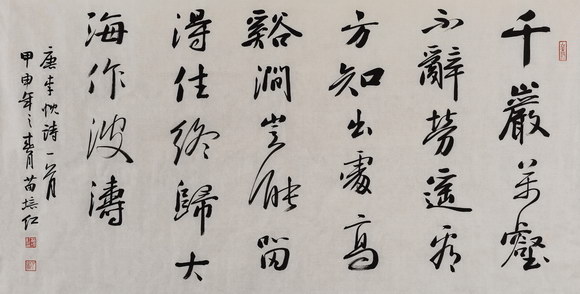 千巖萬壑
不辭勞遥看
方知出處高
谿澗豈能留
得住終歸大
海作波濤
唐李忱詩一首
甲申年之春月苗培红